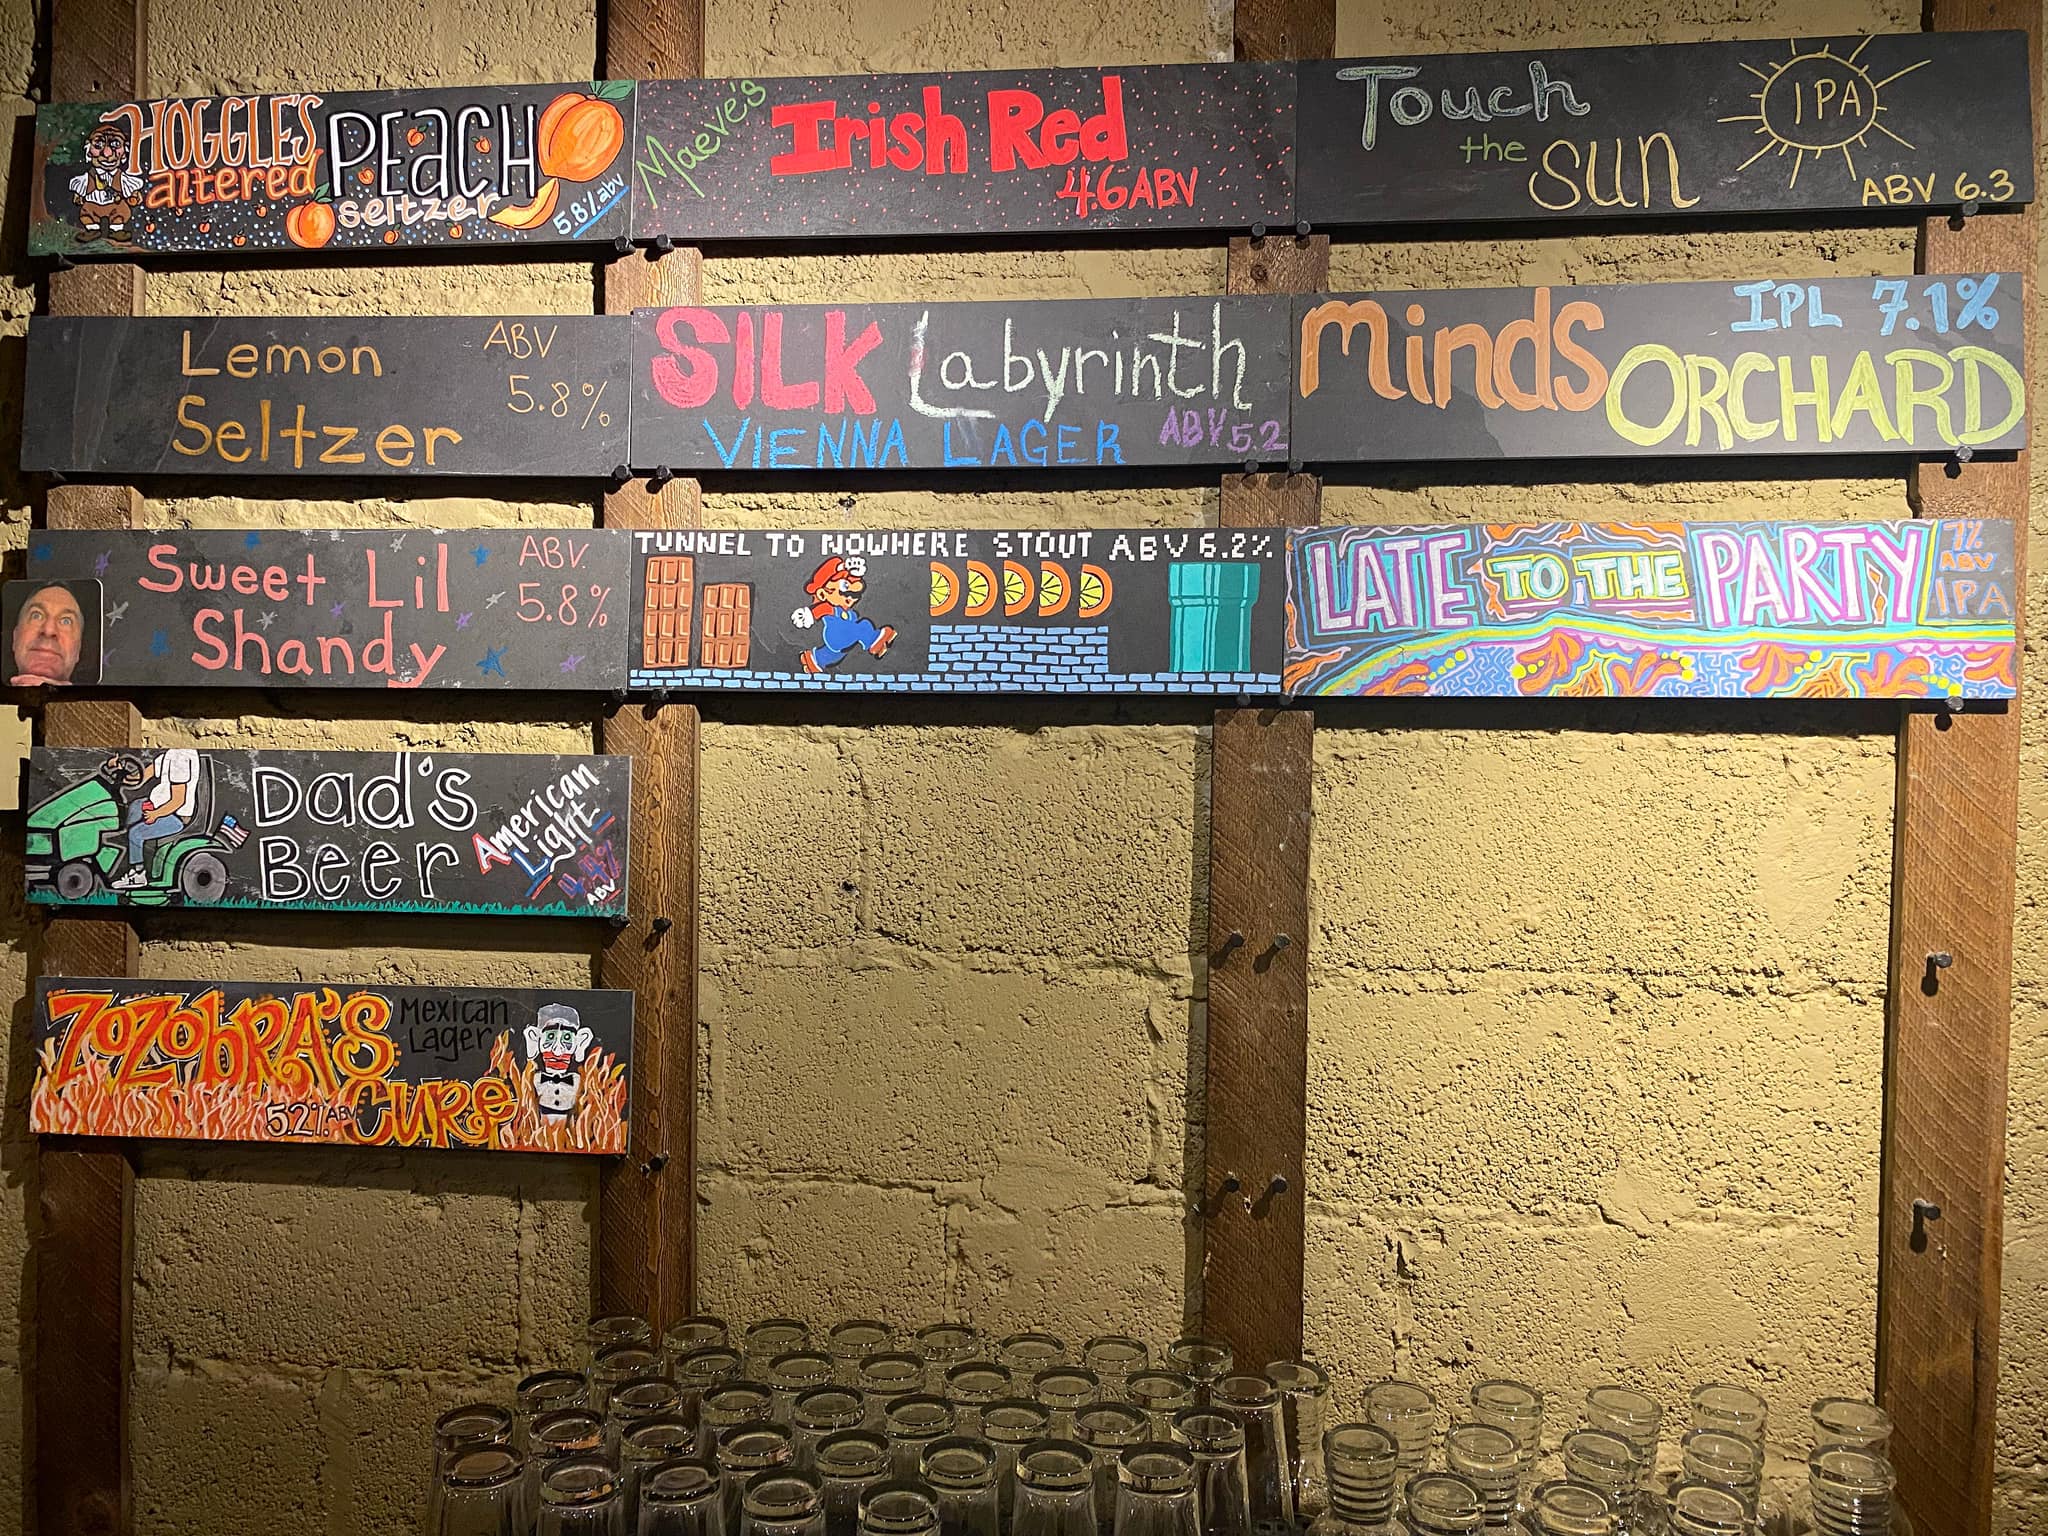 HOGGLE'S
altered
PEACH
seltzer
5.8% abv
Maeve's
Irish Red
4.6 ABV
Touch
the
Sun
IPA
ABV 6.3
Lemon
Seltzer
ABV
5.8%
SILK Labyrinth
VIENNA LAGER
ABV 5.2
Minds
ORCHARD
IPL 7.1%
Sweet Lil
Shandy
ABV.
5.8%
TUNNEL TO NOWHERE STOUT ABV 6.2%
LATE TO THE PARTY
7%
ABV
IPA
Dad's
Beer
American
Light
4.4%
ABV
ZOZObRA'S
CURe
Mexican
Lager
5.2% ABV